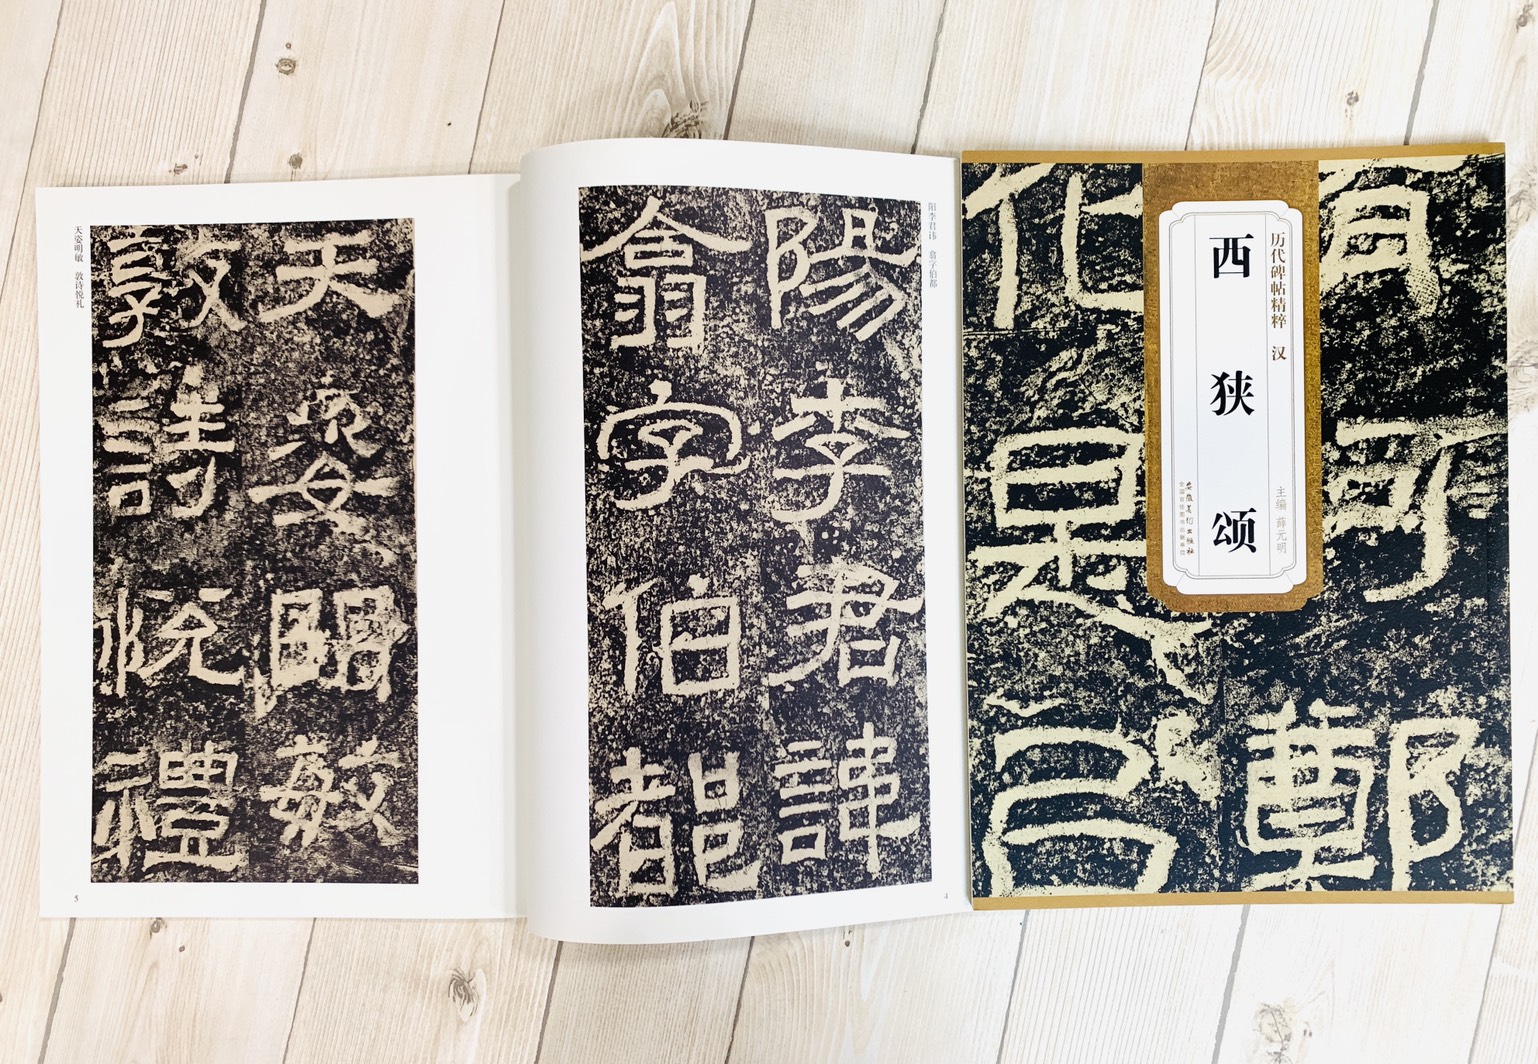 历代碑帖精粹 汉
西狭颂
主编 薛元明
安徽美术出版社
全国百佳图书出版单位
有
可
鄭
化
是
己
阳李君讳 翕字伯都
陽李君諱
翕字伯都
4
天姿明敏 敦诗悦礼
天姿明敏
敦詩悅禮
5